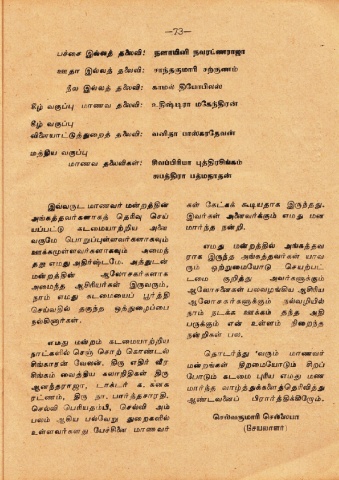 —73—
பச்சை இல்லத் தலைவி: நளாயினி நவரட்ணராஜா
ஊதா இல்லத் தலைவி: சாந்தகுமாரி சற்குணம்
நீல இல்லத் தலைவி: கமல் தியோபிலஸ்
கீழ் வகுப்பு மாணவ தலைவி: உதிஷ்டிரா மகேந்திரன்
கீழ் வகுப்பு
விளையாட்டுத்துறைத் தலைவி: வனிதா பாஸ்கரதேவன்
மத்திய வகுப்பு
மாணவ தலைவிகள்: சிவப்பிரியா புத்திரசிங்கம்
சுபத்திரா பத்மநாதன்
இவ்வருட மாணவர் மன்றத்தின்
அங்கத்தவர்களாகத் தெரிவு செய்
யப்பட்டு கடமையாற்றிய அனை
வருமே பொறுப்புள்ளவர்களாகவும்
ஊக்கமுள்ளவர்களாகவும் அமைந்
தது எமது அதிர்ஷ்டமே. அத்துடன்
மன்றத்தின் ஆலோசகர்களாக
அமைந்த ஆசிரியர்கள் இருவரும்,
நாம் எமது கடமையைப் பூர்த்தி
செய்வதில் தகுந்த ஒத்துழைப்பை
நல்கினார்கள்.
எமது மன்றம் கடமையாற்றிய
நாட்களில் செஞ் சொற் கொண்டல்
சிங்காரவேலன், திரு எதிர் வீர
சிங்கம் வைத்திய கலாநிதிகள் திரு
ஆனந்தராஜா, டாக்டர் க. கங்கை
ரட்ணம், திரு நா. பார்த்தசாரதி,
செல்வி பெரியதம்பி, செல்வி அம்
பலம் ஆகிய பல்வேறு துறைகளில்
உள்ளவர்களது பேச்சினை மாணவர்
கள் கேட்கக் கூடியதாக இருந்தது.
இவர்கள் அனைவர்க்கும் எமது மன
மார்ந்த நன்றி.
எமது மன்றத்தில் அங்கத்தவ
ராக இருந்த அங்கத்தவர்கள் யாவ
ரும் ஒற்றுமையோடு செயற்பட்
டமை குறித்து அவர்களுக்கும்
ஆலோசனைகள் பலவழங்கிய ஆசிரிய
ஆலோசகர்களுக்கும் நல்வழியில்
நாம் நடக்க ஊக்கம் தந்த அதி
பருக்கும் என் உள்ளம் நிறைந்த
நன்றிகள் பல.
தொடர்ந்து வரும் மாணவர்
மன்றங்கள் திறமையோடும் சிறப்
போடும் கடமை புரிய எமது மன
மார்ந்த வாழ்த்துக்களைத்தெரிவித்து
ஆண்டவனைப் பிரார்த்திக்கிறோம்.
செல்வகுமாரி செல்லையா
(செயலாளர்)